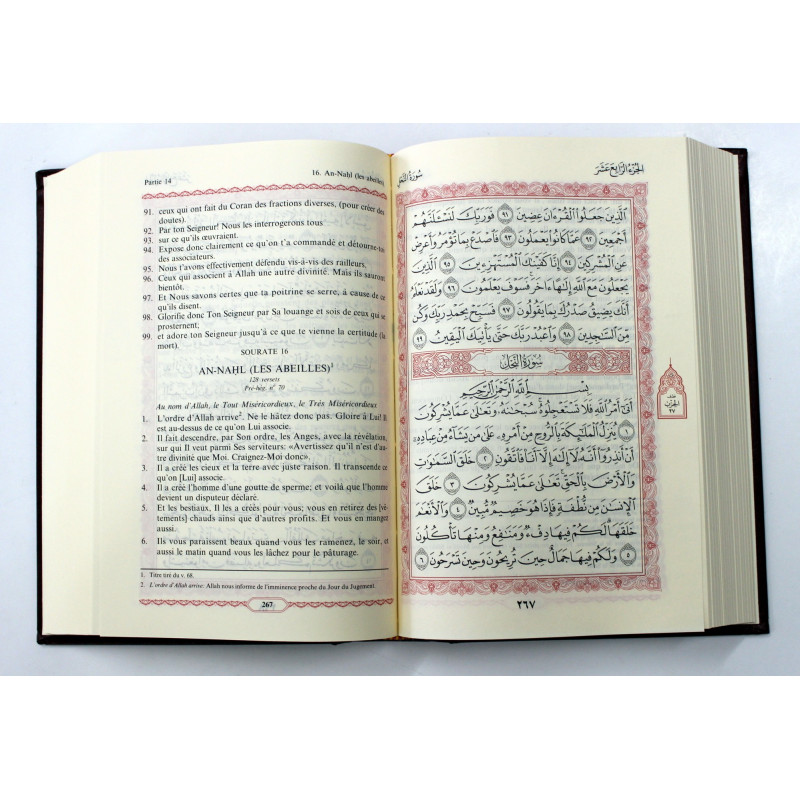 Partie 14
16. An-Nahl (les abeilles)
91. ceux qui ont fait du Coran des fractions diverses, (pour créer des
doutes).
92. Par ton Seigneur! Nous les interrogerons tous
93. sur ce qu'ils œuvraient.
94. Expose donc clairement ce qu'on t'a commandé et détourne-toi
des associateurs.
95. Nous t'avons effectivement défendu vis-à-vis des railleurs,
96. Ceux qui associent à Allah une autre divinité. Mais ils sauront
bientôt.
97. Et Nous savons certes que ta poitrine se serre, à cause de ce
qu'ils disent.
98. Glorifie donc Ton Seigneur par Sa louange et sois de ceux qui se
prosternent;
99. et adore ton Seigneur jusqu'à ce que te vienne la certitude (la
mort).
SOURATE 16
AN-NAḤL (LES ABEILLES)¹
128 versets
Pré-hég. n° 70
Au nom d'Allah, le Tout Miséricordieux, le Très Miséricordieux
1. L'ordre d'Allah arrive². Ne le hâtez donc pas. Gloire à Lui! Il
est au-dessus de ce qu'on Lui associe.
2. Il fait descendre, par Son ordre, les Anges, avec la révélation,
sur qui Il veut parmi Ses serviteurs: «Avertissez qu'il n'est d'au-
tre divinité que Moi. Craignez-Moi donc».
3. Il a créé les cieux et la terre avec juste raison. Il transcende ce
qu'on [Lui] associe.
4. Il a créé l'homme d'une goutte de sperme; et voilà que l'homme
devient un disputeur déclaré.
5. Et les bestiaux, Il les a créés pour vous; vous en retirez des [vê-
tements] chauds ainsi que d'autres profits. Et vous en mangez
aussi.
6. Ils vous paraissent beaux quand vous les ramenez, le soir, et
aussi le matin quand vous les lâchez pour le pâturage.
1. Titre tiré du v. 68.
2. L'ordre d'Allah arrive: Allah nous informe de l'imminence proche du Jour du Jugement.
267
سُورَةُ النَّحْلِ
الجُزْءُ الرَّابِعَ عَشَرَ
الَّذِينَ جَعَلُوا الْقُرْءَانَ عِضِينَ ٩١ فَوَرَبِّكَ لَنَسْـَٔلَنَّهُمْ
أَجْمَعِينَ ٩٢ عَمَّا كَانُوا يَعْمَلُونَ ٩٣ فَاصْدَعْ بِمَا تُؤْمَرُ وَأَعْرِضْ
عَنِ الْمُشْرِكِينَ ٩٤ إِنَّا كَفَيْنَاكَ الْمُسْتَهْزِءِينَ ٩٥ الَّذِينَ
يَجْعَلُونَ مَعَ اللَّهِ إِلَٰهًا ءَاخَرَ فَسَوْفَ يَعْلَمُونَ ٩٦ وَلَقَدْ نَعْلَمُ
أَنَّكَ يَضِيقُ صَدْرُكَ بِمَا يَقُولُونَ ٩٧ فَسَبِّحْ بِحَمْدِ رَبِّكَ وَكُن
مِّنَ السَّاجِدِينَ ٩٨ وَاعْبُدْ رَبَّكَ حَتَّىٰ يَأْتِيَكَ الْيَقِينُ ٩٩
سُورَةُ النَّحْلِ
بِسْمِ اللَّهِ الرَّحْمَٰنِ الرَّحِيمِ
أَتَىٰ أَمْرُ اللَّهِ فَلَا تَسْتَعْجِلُوهُ سُبْحَانَهُ وَتَعَالَىٰ عَمَّا يُشْرِكُونَ
١ يُنَزِّلُ الْمَلَائِكَةَ بِالرُّوحِ مِنْ أَمْرِهِ عَلَىٰ مَن يَشَاءُ مِنْ عِبَادِهِ
أَنْ أَنذِرُوا أَنَّهُ لَا إِلَٰهَ إِلَّا أَنَا فَاتَّقُونِ ٢ خَلَقَ السَّمَاوَاتِ
وَالْأَرْضَ بِالْحَقِّ تَعَالَىٰ عَمَّا يُشْرِكُونَ ٣ خَلَقَ
الْإِنسَانَ مِن نُّطْفَةٍ فَإِذَا هُوَ خَصِيمٌ مُّبِينٌ ٤ وَالْأَنْعَامَ
خَلَقَهَا لَكُمْ فِيهَا دِفْءٌ وَمَنَافِعُ وَمِنْهَا تَأْكُلُونَ
٥ وَلَكُمْ فِيهَا جَمَالٌ حِينَ تُرِيحُونَ وَحِينَ تَسْرَحُونَ ٦
الحِزْب
٢٧
٢٦٧